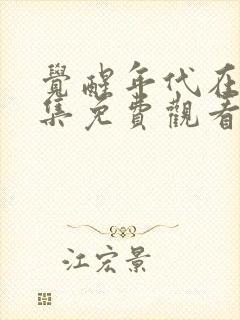 覺醒年代在
集免費觀看
江宏景